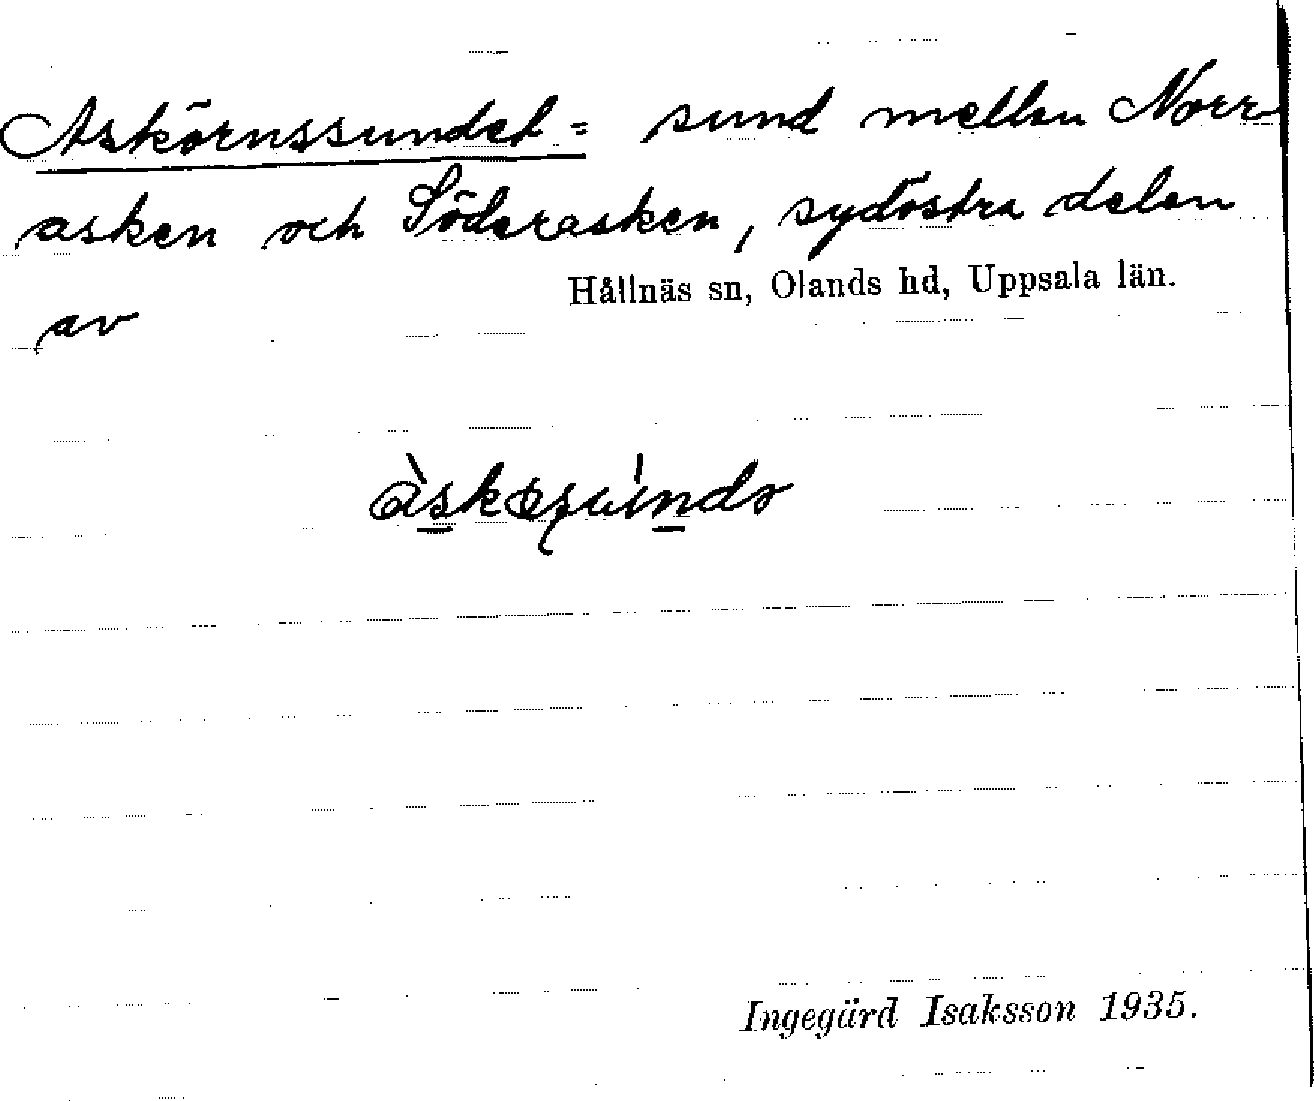 Askörnssundet = sund mellan Norr-
asken och Söderasken, sydöstra delen
av Hållnäs sn, Olands hd, Uppsala län.
Ingegärd Isaksson 1935.